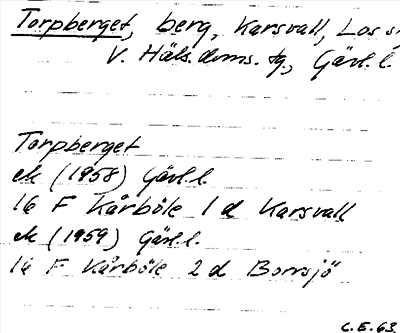 Torpberget, berg, Karsvall, Los s
V. Häls. doms. tg., Gävl. l.
Torpberget
ek (1958) Gävl. l.
16 F Kårböle 1 d Karsvall
ek (1959) Gävl. l.
16 F Kårböle 2 d Borrsjö
C. E. 63.